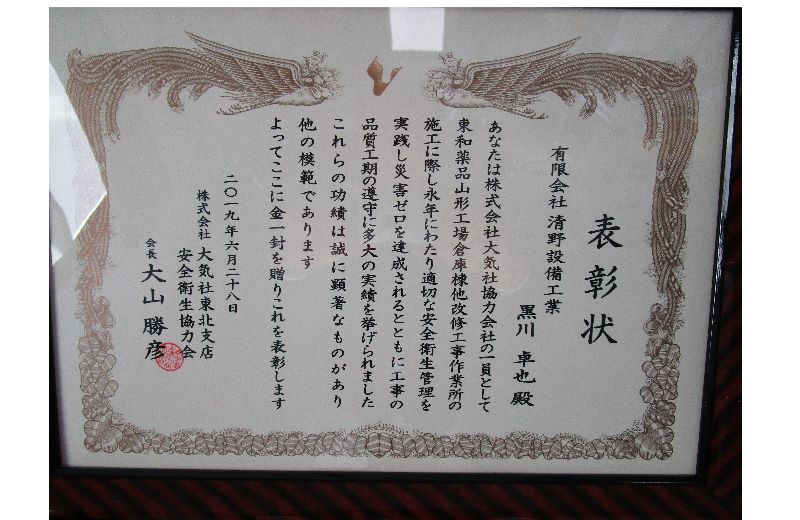 表彰状
有限会社 清野設備工業
黒川 卓也 殿
あなたは株式会社大気社協力会社の一員として
東和薬品山形工場倉庫棟他改修工事作業所の
施工に際し永年にわたり適切な安全衛生管理を
実践し災害ゼロを達成されるとともに工事の
品質工期の遵守に多大の実績を挙げられました
これらの功績は誠に顕著なものがあり
他の模範であります
よってここに金一封を贈りこれを表彰します
二〇一九年六月二十八日
株式会社 大気社東北支店
安全衛生協力会
会長 大山 勝彦